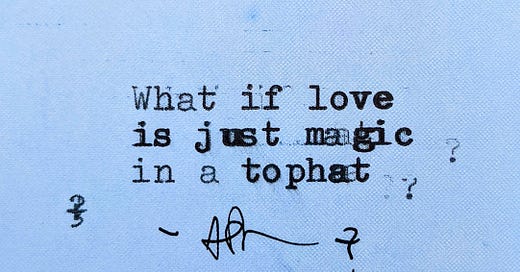 What if love
is just magic ?
in a tophat ?